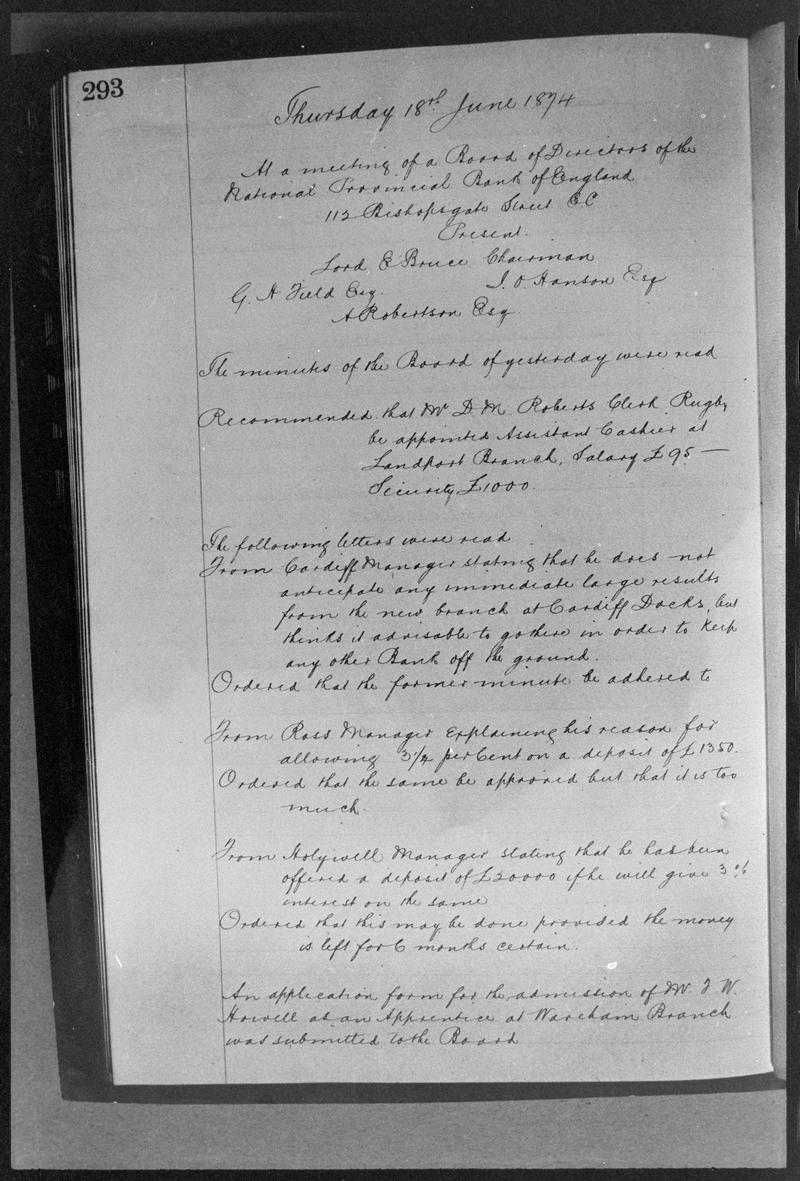 293
Thursday 18th June 1874
At a meeting of a Board of Directors of the
National Provincial Bank of England
112 Bishopsgate Street EC
Present.
Lord E Bruce Chairman
G. H Field Esq. J. O. Hanson Esq
A Robertson Esq.
The minutes of the Board of yesterday were read
Recommended that Mr D M Roberts Clerk Rugby
be appointed Assistant Cashier at
Landport Branch, Salary £95 —
Security £1000.
The following letters were read
From Cardiff Manager stating that he does not
anticipate any immediate large results
from the new branch at Cardiff Docks, but
thinks it advisable to go there in order to keep
any other Bank off the ground.
Ordered that the former minute be adhered to
From Ross Manager explaining his reason for
allowing 3½ per Cent on a deposit of £1350.
Ordered that the same be approved but that it is too
much
From Holywell Manager stating that he has been
offered a deposit of £20000 if he will give 3%
interest on the same
Ordered that this may be done provided the money
is left for 6 months certain.
An application form for the admission of Mr. J W.
Howell as an Apprentice at Wareham Branch
was submitted to the Board